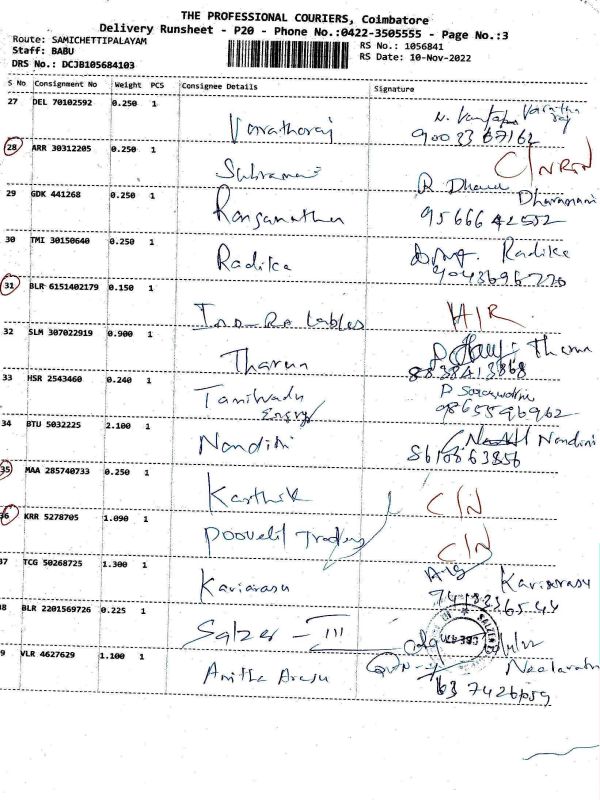 THE PROFESSIONAL COURIERS, Coimbatore
Delivery Runsheet - P20 - Phone No.:0422-3505555 - Page No.:3
Route: SAMICHETTIPALAYAM
RS No.: 1056841
Staff: BABU
RS Date: 10-Nov-2022
DRS No.: DCJB105684103
S No Consignment No Weight PCS Consignee Details Signature
27 DEL 70102592 0.250 1
Varatharaj
28 ARR 30312205 0.250 1
C/NRTN
29 GDK 441268 0.250 1
Ranganathan R
9566642552
30 TMI 30150640 0.250 1
Radika Radika
9043696770
31 BLR 6151402179 0.150 1
H/R
32 SLM 307022919 0.900 1
Tharun Tharun
8838413868
33 HSR 2543460 0.240 1
Tamilnadu P Saraswathi
Energy 9865596962
34 BTU 5032225 2.100 1
Nandini Nandini
35 MAA 285740733 0.250 1
Karthik C/N
36 KRR 5278705 1.090 1
Poovelil Trading C/N
37 TCG 50268725 1.300 1
Kaviarasu Kaviarasu
38 BLR 2201569726 0.225 1
Salzer - III
39 VLR 4627629 1.100 1
Anitha Arasu